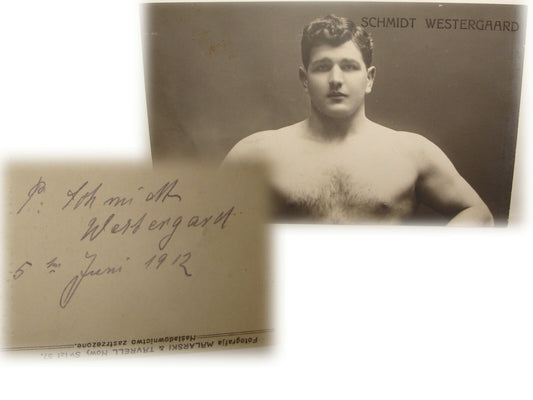 SCHMIDT WESTERGAARD
P. Schmidt
Westergard.
5 ten Juni 1912
Fotografja MALARSKI & TAVRELL Nowy Świat 57.
Naśladownictwo zastrzeżone.